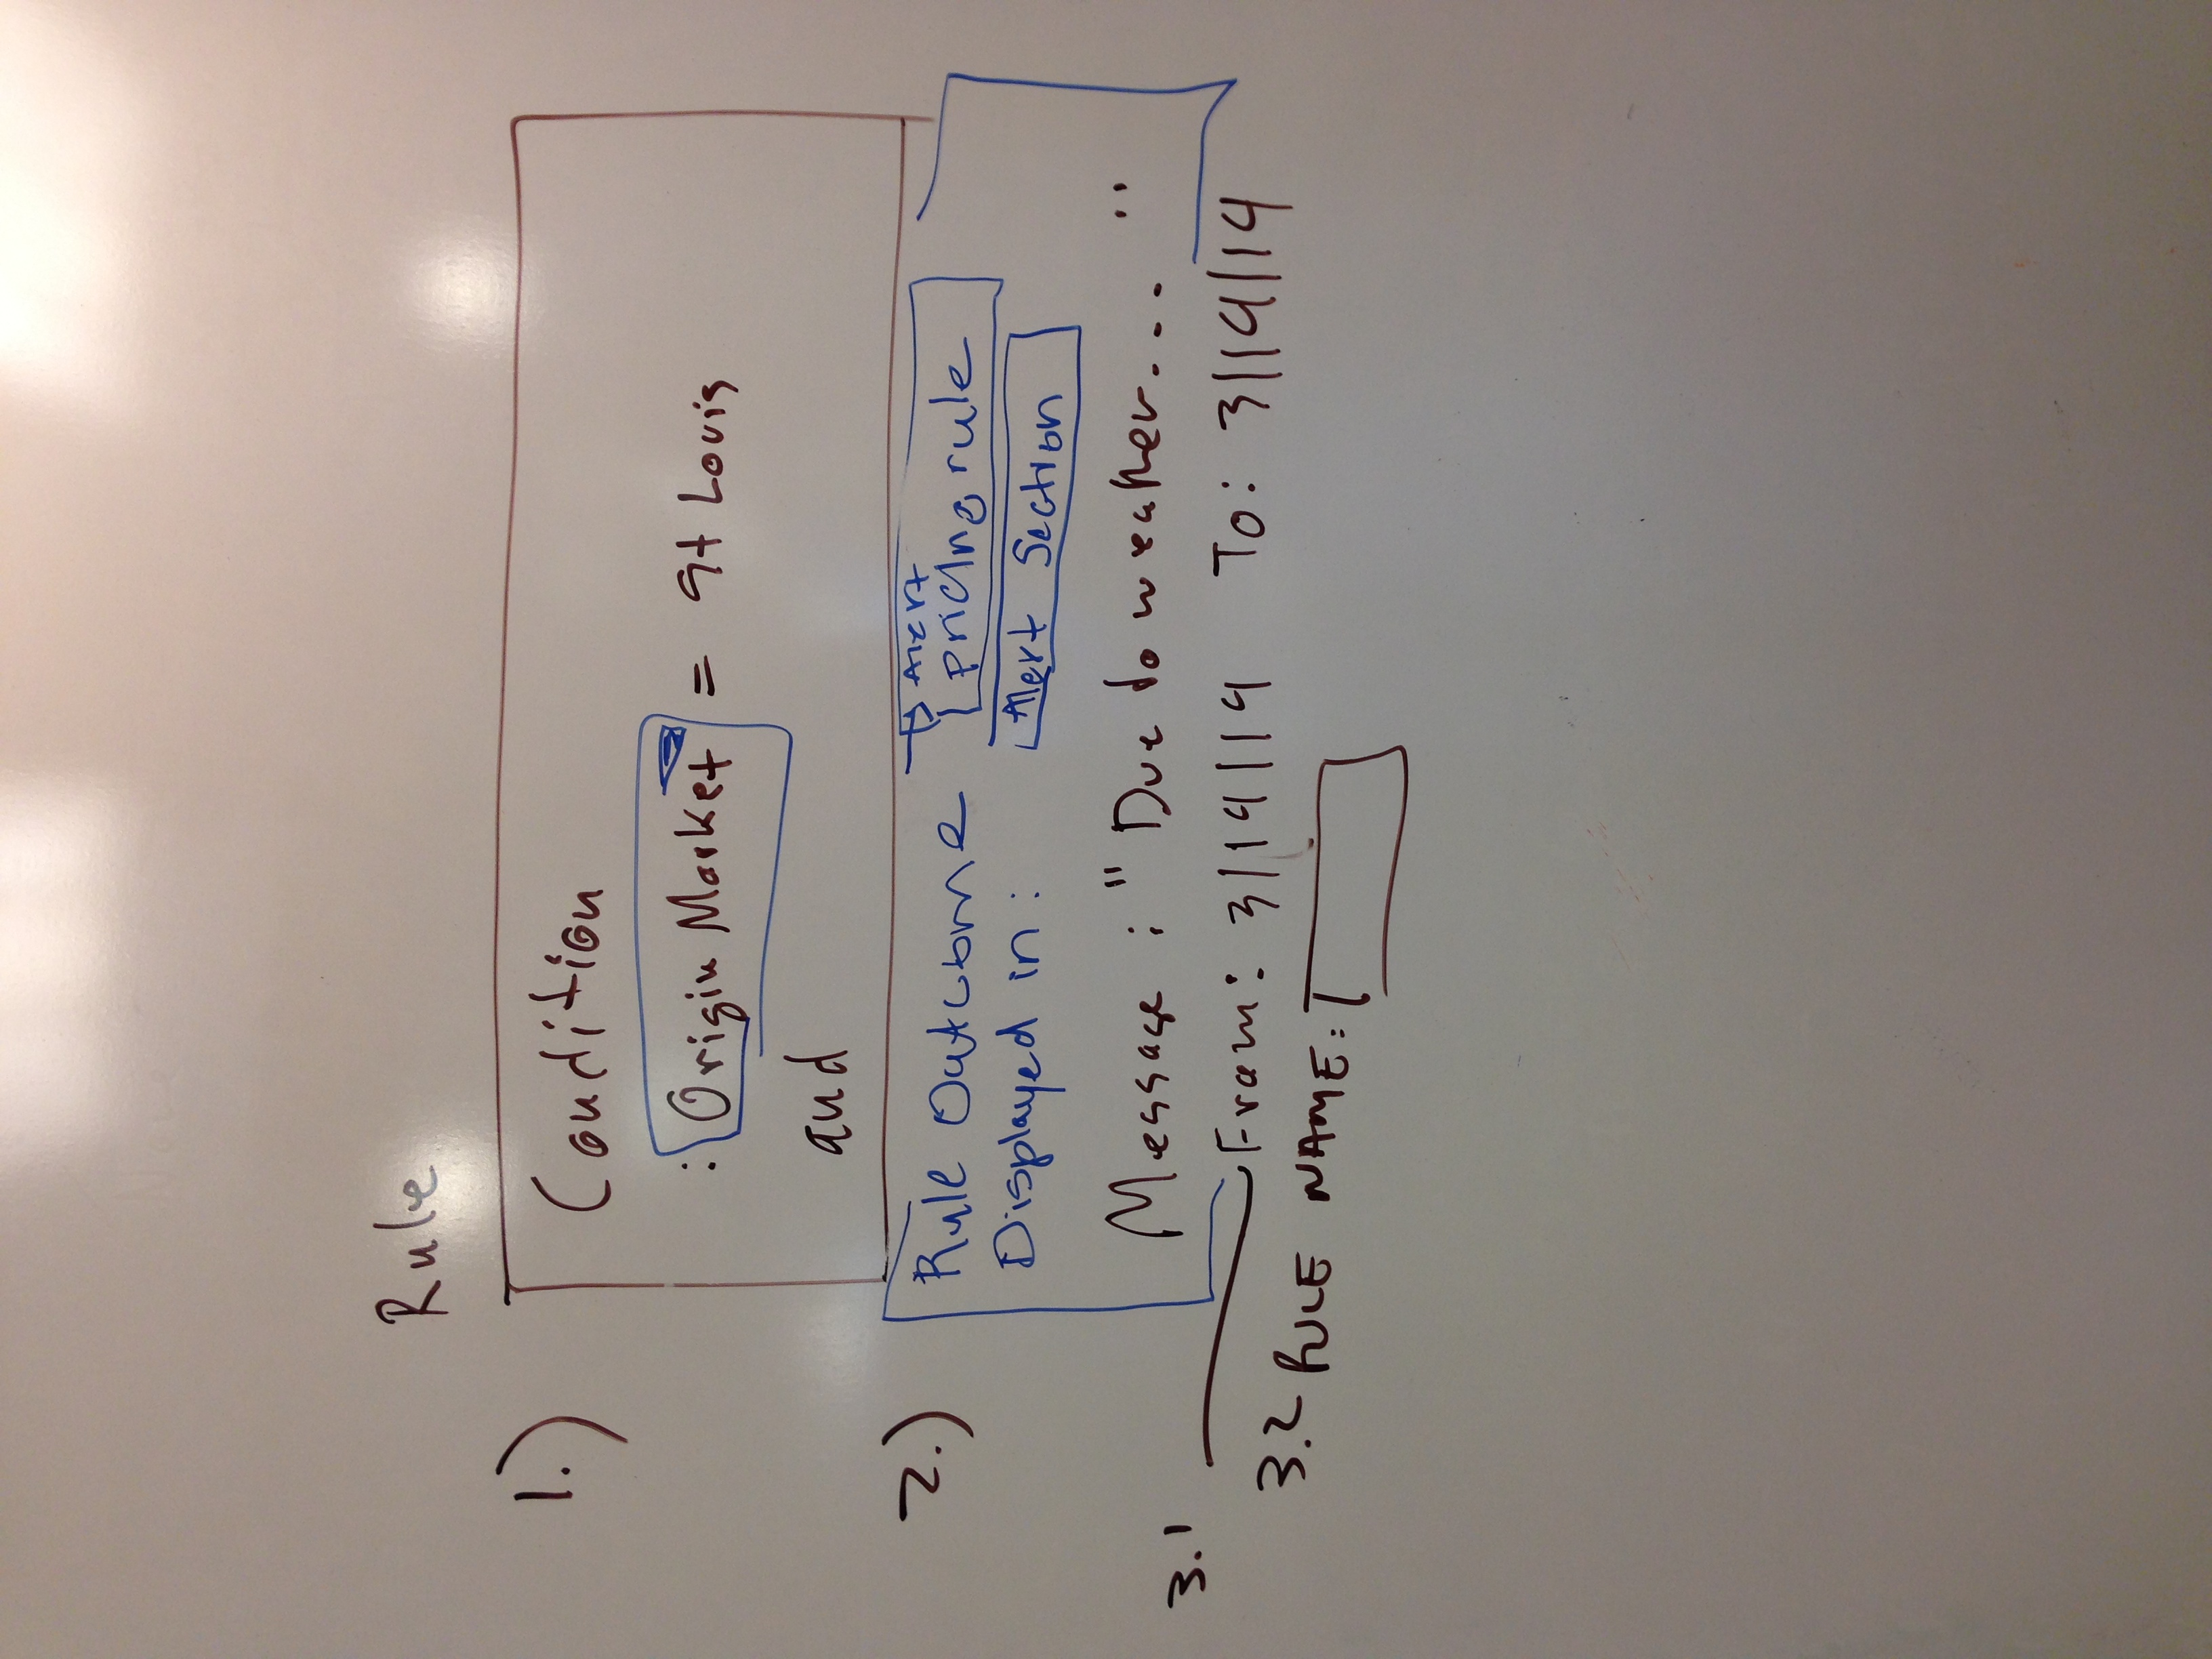 Rule
1.)
Condition
: Origin Market = St Louis
and
2.)
Rule Outcome → Alert
pricing rule
Displayed in: Alert Section
Message : " Due to weather.... "
3.1
From: 3/19/19 To: 3/19/19
3.2 RULE NAME: